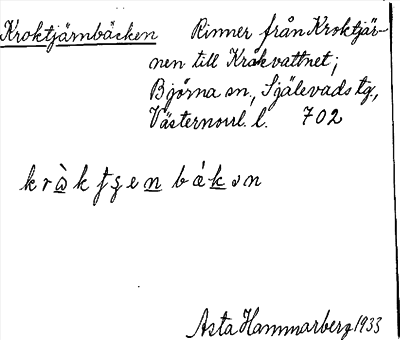 Kroktjärnbäcken Rinner från Kroktjär-
nen till Kråkvattnet;
Björna sn., Själevads tg.,
Västernorrl. l. 702
Asta Hammarberg 1933